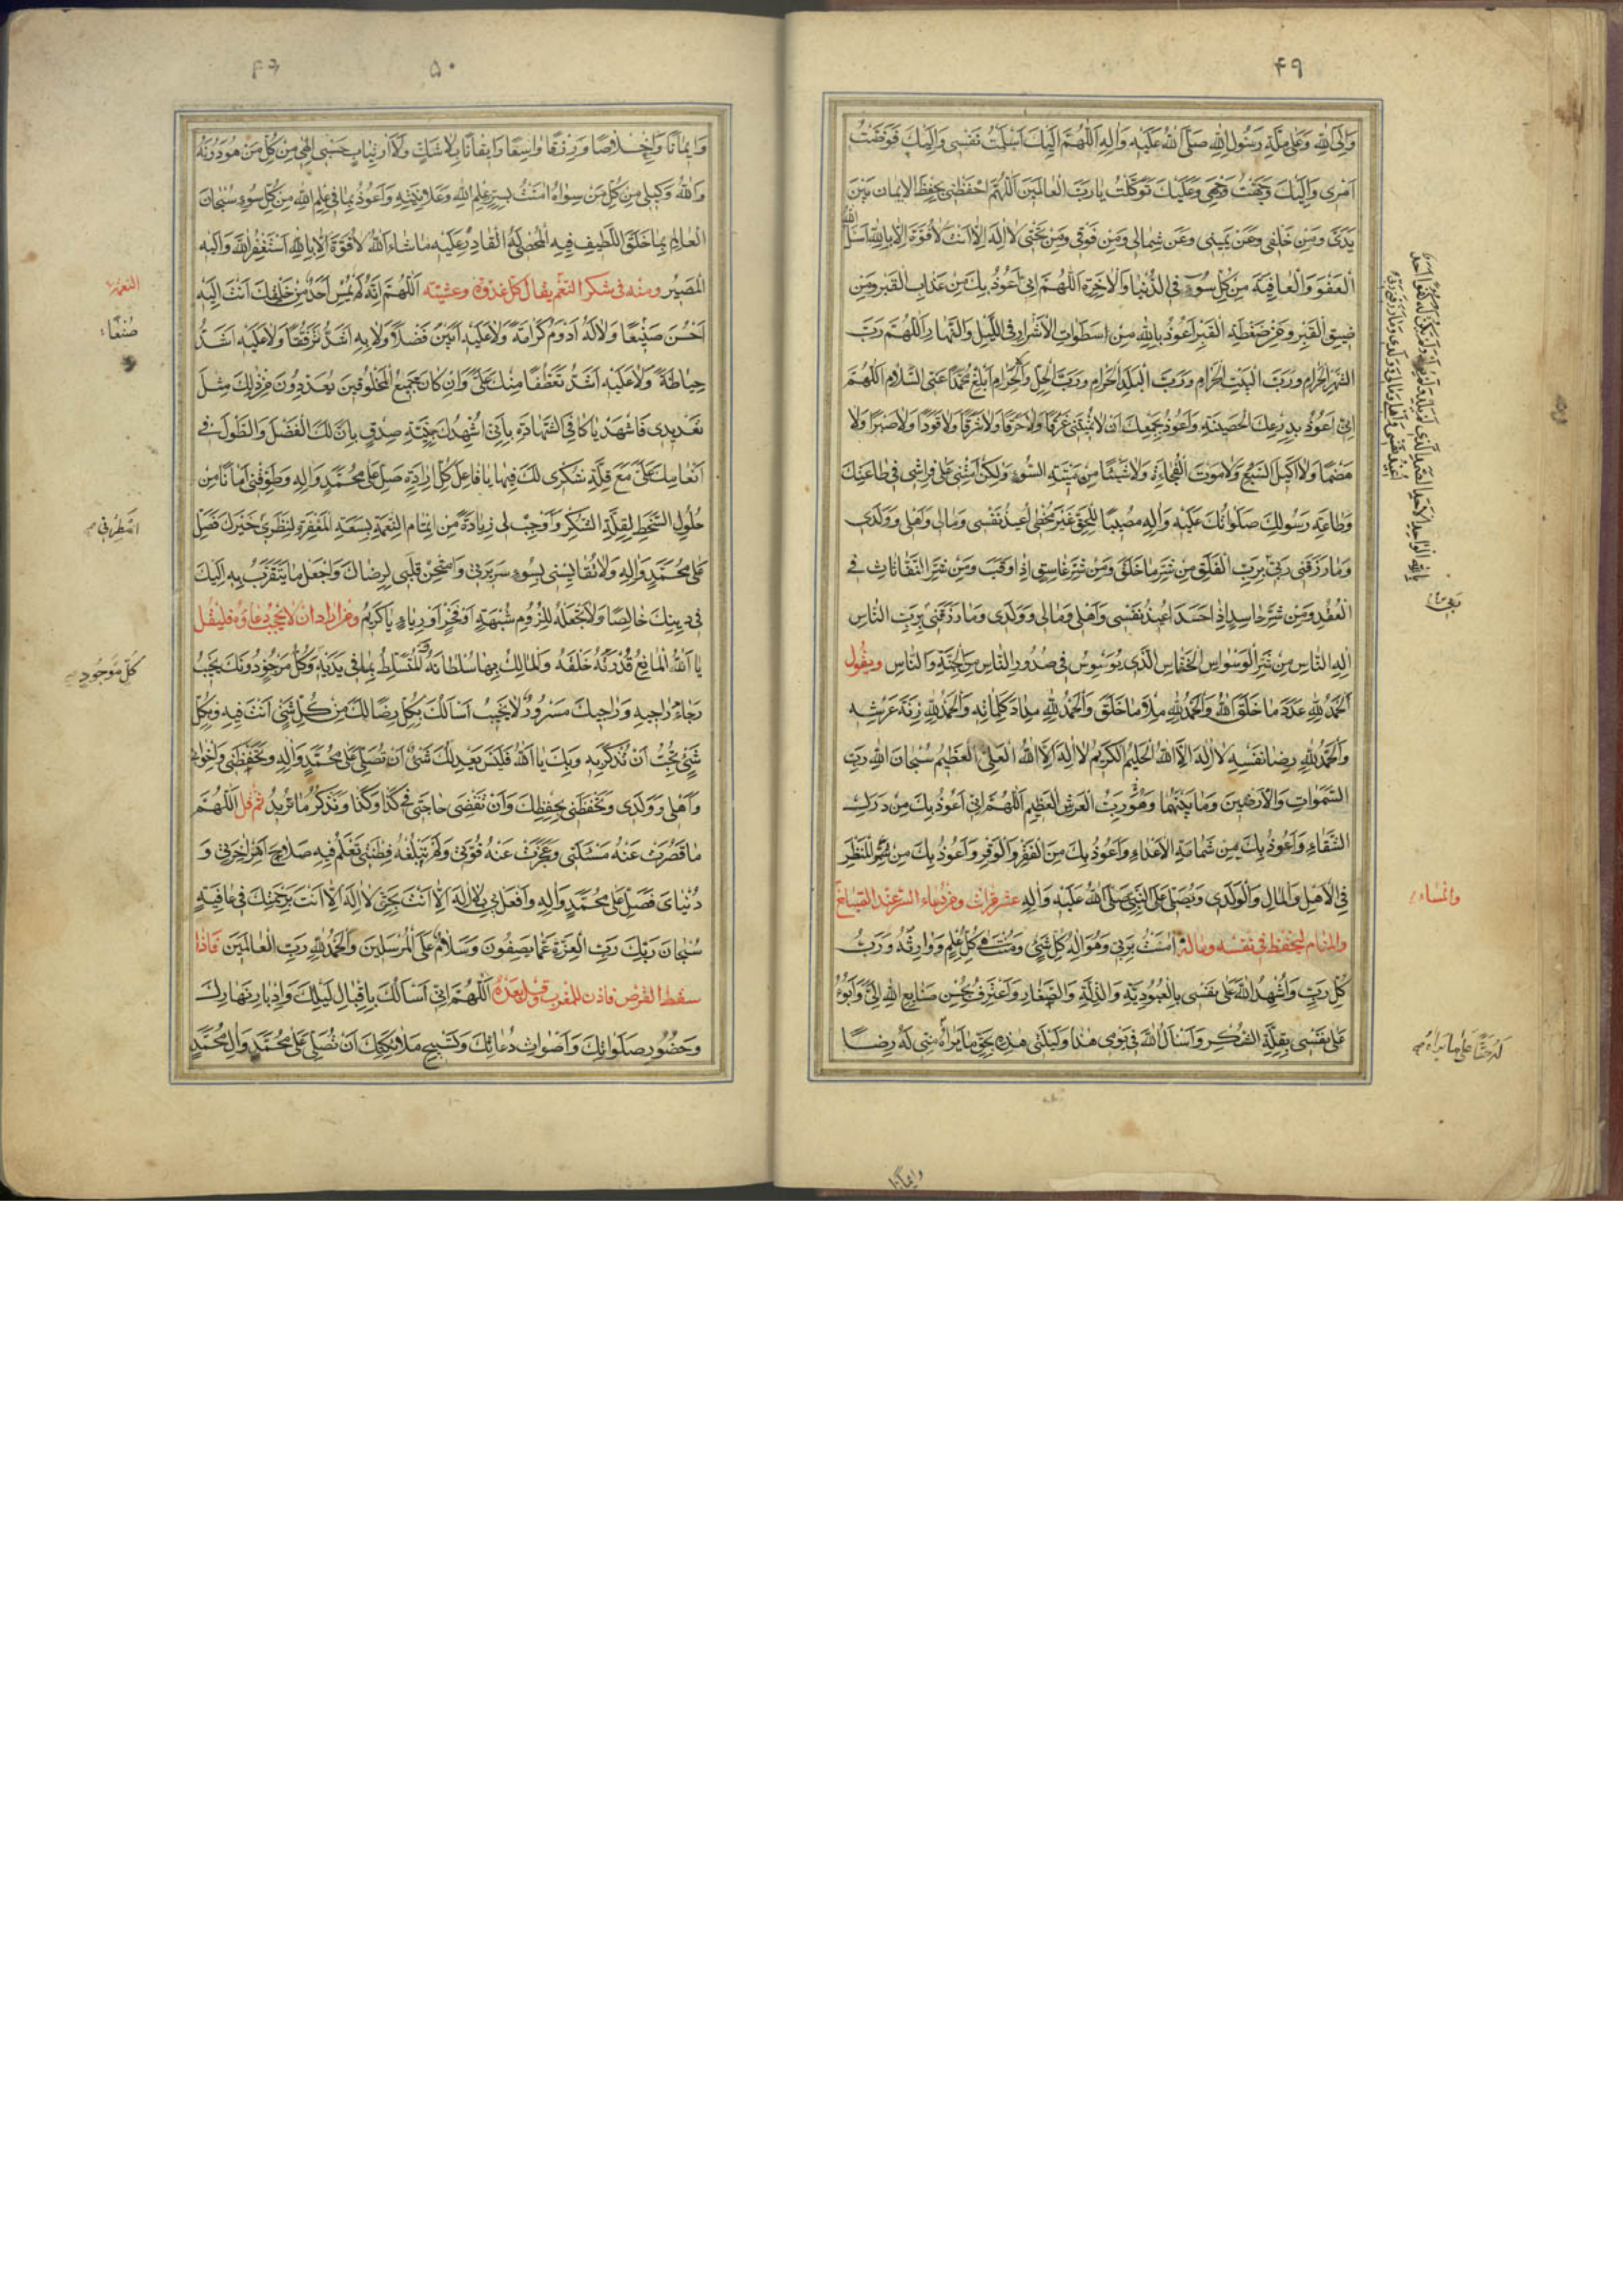 ۴۹
وَاِلَى اللهِ وَعَلى مِلَّةِ رَسُولِ اللهِ صَلَّى اللهُ عَلَيْهِ وَالِهِ اَللّهُمَّ اِلَيْكَ اَسْلَمْتُ نَفْسى وَاِلَيْكَ فَوَّضْتُ
اَمْرى وَاِلَيْكَ وَجَّهْتُ وَجْهى وَعَلَيْكَ تَوَكَّلْتُ يارَبَّ الْعالَمينَ اَللّهُمَّ احْفَظْنى بِحِفْظِ الْايمانِ مِنْ بَيْنِ
يَدَىَّ وَمِنْ خَلْفى وَعَنْ يَمينى وَعَنْ شِمالى وَمِنْ فَوْقى وَمِنْ تَحْتى لااِلهَ اِلاّ اَنْتَ لاقُوَّةَ اِلاّ بِاللهِ اَسْئَلُ اللهَ
الْعَفْوَ وَالْعافِيَةَ مِنْ كُلِّ سُوءٍ فِى الدُّنْيا وَالْاخِرَةِ اَللّهُمَّ اِنّى اَعُوذُ بِكَ مِنْ عَذابِ الْقَبْرِ وَمِنْ
ضيقِ الْقَبْرِ وَمِنْ ضَغْطَةِ الْقَبْرِ اَعُوذُ بِاللهِ مِنْ سَطَواتِ الْاَشْرارِ فِى اللَّيْلِ وَالنَّهارِ اَللّهُمَّ رَبَّ
الشَّهْرِ الْحَرامِ وَرَبَّ الْبَيْتِ الْحَرامِ وَرَبَّ الْبَلَدِ الْحَرامِ وَرَبَّ الْحِلِّ وَالْحَرامِ اَبْلِغْ مُحَمَّدًا عَنِّى السَّلامَ اَللّهُمَّ
اِنّى اَعُوذُ بِدِرْعِكَ الْحَصينَةِ وَاَعُوذُ بِجَمْعِكَ اَنْ لاتُميتَنى غَرَقًا وَلاحَرَقًا وَلاشَرَقًا وَلاقَوَدًا وَلاصَبْرًا وَلا
هَضْمًا وَلااَكيلَ السَّبُعِ وَلامَوْتَ الْفُجاءَةِ وَلاشَيْئًا مِنْ ميتَةِ السُّوءِ وَلكِنْ اَمِتْنى عَلى فِراشى فى طاعَتِكَ
وَطاعَةِ رَسُولِكَ صَلَواتُكَ عَلَيْهِ وَالِهِ مُصيبًا لِلْحَقِّ غَيْرَ مُخْطِئٍ اُعيذُ نَفْسى وَمالى وَاَهْلى وَوَلَدى
وَمارَزَقَنى رَبّى بِرَبِّ الْفَلَقِ مِنْ شَرِّ ماخَلَقَ وَمِنْ شَرِّ غاسِقٍ اِذا وَقَبَ وَمِنْ شَرِّ النَّفّاثاتِ فِى
الْعُقَدِ وَمِنْ شَرِّ حاسِدٍ اِذا حَسَدَ اُعيذُ نَفْسى وَاَهْلى وَمالى وَوَلَدى وَمارَزَقَنى بِرَبِّ النّاسِ
اِلهِ النّاسِ مِنْ شَرِّ الْوَسْواسِ الْخَنّاسِ الَّذى يُوَسْوِسُ فى صُدُورِ النّاسِ مِنَ الْجِنَّةِ وَالنّاسِ ويقول
اَلْحَمْدُ لِلّهِ عَدَدَ ماخَلَقَ اللهُ وَالْحَمْدُ لِلّهِ مِلْاَ ماخَلَقَ وَالْحَمْدُ لِلّهِ مِدادَ كَلِماتِهِ وَالْحَمْدُ لِلّهِ زِنَةَ عَرْشِهِ
وَالْحَمْدُ لِلّهِ رِضا نَفْسِهِ لااِلهَ اِلاَّ اللهُ الْحَليمُ الْكَريمُ لااِلهَ اِلاَّ اللهُ الْعَلِىُّ الْعَظيمُ سُبْحانَ اللهِ رَبِّ
السَّمواتِ وَالْاَرَضينَ وَمابَيْنَهُما وَهُوَ رَبُّ الْعَرْشِ الْعَظيمِ اَللّهُمَّ اِنّى اَعُوذُ بِكَ مِنْ دَرَكِ
الشَّقاءِ وَاَعُوذُ بِكَ مِنْ شَماتَةِ الْاَعْداءِ وَاَعُوذُ بِكَ مِنَ الْفَقْرِ وَالْوَقْرِ وَاَعُوذُ بِكَ مِنْ سُوءِ الْمَنْظَرِ
فِى الْاَهْلِ وَالْمالِ وَالْوَلَدِ وَيُصَلّى عَلَى النَّبِىِّ صَلَّى اللهُ عَلَيْهِ وَالِهِ عشر مرّات ومن دعاء السّر عند الصّباح
والمنام لتحفظ فى نفسه وماله امَنْتُ بِرَبّى وَهُوَ اِلهُ كُلِّ شَىْءٍ وَمُنْتَهى كُلِّ عِلْمٍ وَوارِثُهُ وَرَبُّ
كُلِّ رَبٍّ وَاُشْهِدُ اللهَ عَلى نَفْسى بِالْعُبُودِيَّةِ وَالذِّلَّةِ وَالصَّغارِ وَاَعْتَرِفُ بِحُسْنِ صَنايِعِ اللهِ اِلَىَّ وَاَبُوءُ
عَلى نَفْسى بِقِلَّةِ الشُّكْرِ وَاَسْئَلُ اللهَ فى يَوْمى هذا وَلَيْلَتى هذِهِ بِحَقِّ مايَراهُ مِنّى لَهُ رِضًا
والمساء
وايمانا
۵۰
وَايمانًا وَاِخْلاصًا وَرِزْقًا واسِعًا وَايقانًا بِلاشَكٍّ وَلاَارْتِيابٍ حَسْبى اِلهى مِنْ كُلِّ مَنْ هُوَ دُونَهُ
وَاللهُ وَكيلى مِنْ كُلِّ مَنْ سِواهُ امَنْتُ بِسِرِّ عِلْمِ اللهِ وَعَلانِيَتِهِ وَاَعُوذُ بِما فى عِلْمِ اللهِ مِنْ كُلِّ سُوءٍ سُبْحانَ
الْعالِمِ بِما خَلَقَ اللَّطيفِ فيهِ الْمُحْصى لَهُ الْقادِرِ عَلَيْهِ ماشاءَ اللهُ لاقُوَّةَ اِلاّ بِاللهِ اَسْتَغْفِرُ اللهَ وَاِلَيْهِ
الْمَصيرُ ومنه فى شكر النّعم يقال كلّ غدوة وعشيّة اَللّهُمَّ اِنَّهُ لَمْ يُمْسِ اَحَدٌ مِنْ خَلْقِكَ اَنْتَ اِلَيْهِ
اَحْسَنُ صَنيعًا وَلالَهُ اَدْوَمُ كَرامَةً وَلاعَلَيْهِ اَبْيَنُ فَضْلاً وَلابِهِ اَشَدُّ تَرَفُّقًا وَلاعَلَيْهِ اَشَدُّ
حِياطَةً وَلاعَلَيْهِ اَشَدُّ تَعَطُّفًا مِنْكَ عَلَىَّ وَاِنْ كانَ جَميعُ الْمَخْلُوقينَ يُعَدِّدُونَ مِنْ ذلِكَ مِثْلَ
تَعْديدى فَاشْهَدْ ياكافِىَ الشَّهادَةِ بِاَنّى اُشْهِدُكَ بِنِيَّةِ صِدْقٍ بِاَنَّ لَكَ الْفَضْلَ وَالطَّوْلَ فى
اِنْعامِكَ عَلَىَّ مَعَ قِلَّةِ شُكْرى لَكَ فيها يافاعِلَ كُلِّ اِرادَةٍ صَلِّ عَلى مُحَمَّدٍ وَالِهِ وَطَوِّقْنى اَمانًا مِنْ
حُلُولِ السَّخَطِ لِقِلَّةِ الشُّكْرِ وَاَوْجِبْ لى زِيادَةً مِنْ اِتْمامِ النِّعْمَةِ بِسَعَةِ الْمَغْفِرَةِ لِنَظَرى خَيْرَكَ فَصَلِّ
عَلى مُحَمَّدٍ وَالِهِ وَلاتُقايِسْنى بِسُوءِ سَريرَتى وَامْتَحِنْ قَلْبى لِرِضاكَ وَاجْعَلْ مايُتَقَرَّبُ بِهِ اِلَيْكَ
فى دينِكَ خالِصًا وَلاتَجْعَلْهُ لِلُزُومِ شُبْهَةٍ اَوْفَخْرٍ اَوْرِياءٍ ياكَريمُ ومن اراد ان لايحجب دعاؤه فليقل
يااَللهُ الْمانِعُ قُدْرَتُهُ خَلْقَهُ وَالْمالِكُ بِها سُلْطانَهُ وَالْمُتَسَلِّطُ بِما فى يَدَيْهِ وَكُلُّ مَرْجُوٍّ دُونَكَ يُخَيِّبُ
رَجاءَ راجيهِ وَراجيكَ مَسْرُورٌ لايَخيبُ اَسْئَلُكَ بِكُلِّ رِضًا لَكَ مِنْ كُلِّ شَىْءٍ اَنْتَ فيهِ وَبِكُلِّ
شَىْءٍ تُحِبُّ اَنْ تُذْكَرَ بِهِ وَبِكَ يااَللهُ فَلَيْسَ يَعْدِلُكَ شَىْءٌ اَنْ تُصَلِّىَ عَلى مُحَمَّدٍ وَالِهِ وَتَحْفَظَنى وَاِخْوانى
وَاَهْلى وَوَلَدى وَتَحْفَظَنى بِحِفْظِكَ وَاَنْ تَقْضِىَ حاجَتى فى كَذا وَكَذا وَتَذْكُرُ ماتُريدُ ثمّ قل اَللّهُمَّ
ماقَصُرَتْ عَنْهُ مَسْئَلَتى وَعَجَزَتْ عَنْهُ قُوَّتى وَلَمْ تَبْلُغْهُ فِطْنَتى تَعْلَمُ فيهِ صَلاحَ اَمْرِ اخِرَتى وَ
دُنْياىَ فَصَلِّ عَلى مُحَمَّدٍ وَالِهِ وَافْعَلْ بى بِلااِلهَ اِلاّ اَنْتَ بِحَقِّ لااِلهَ اِلاّ اَنْتَ بِرَحْمَتِكَ فى عافِيَةٍ
سُبْحانَ رَبِّكَ رَبِّ الْعِزَّةِ عَمّايَصِفُونَ وَسَلامٌ عَلَى الْمُرْسَلينَ وَالْحَمْدُ لِلّهِ رَبِّ الْعالَمينَ فاذا
سقط القرص فاذّن للمغرب وقل بعده اَللّهُمَّ اِنّى اَسْئَلُكَ بِاِقْبالِ لَيْلِكَ وَاِدْبارِ نَهارِكَ
وَحُضُورِ صَلَواتِكَ وَاَصْواتِ دُعائِكَ وَتَسْبيحِ مَلائِكَتِكَ اَنْ تُصَلِّىَ عَلى مُحَمَّدٍ وَالِ مُحَمَّدٍ
النعمة
صُنعًا
كُلّ مَوجُودٍ